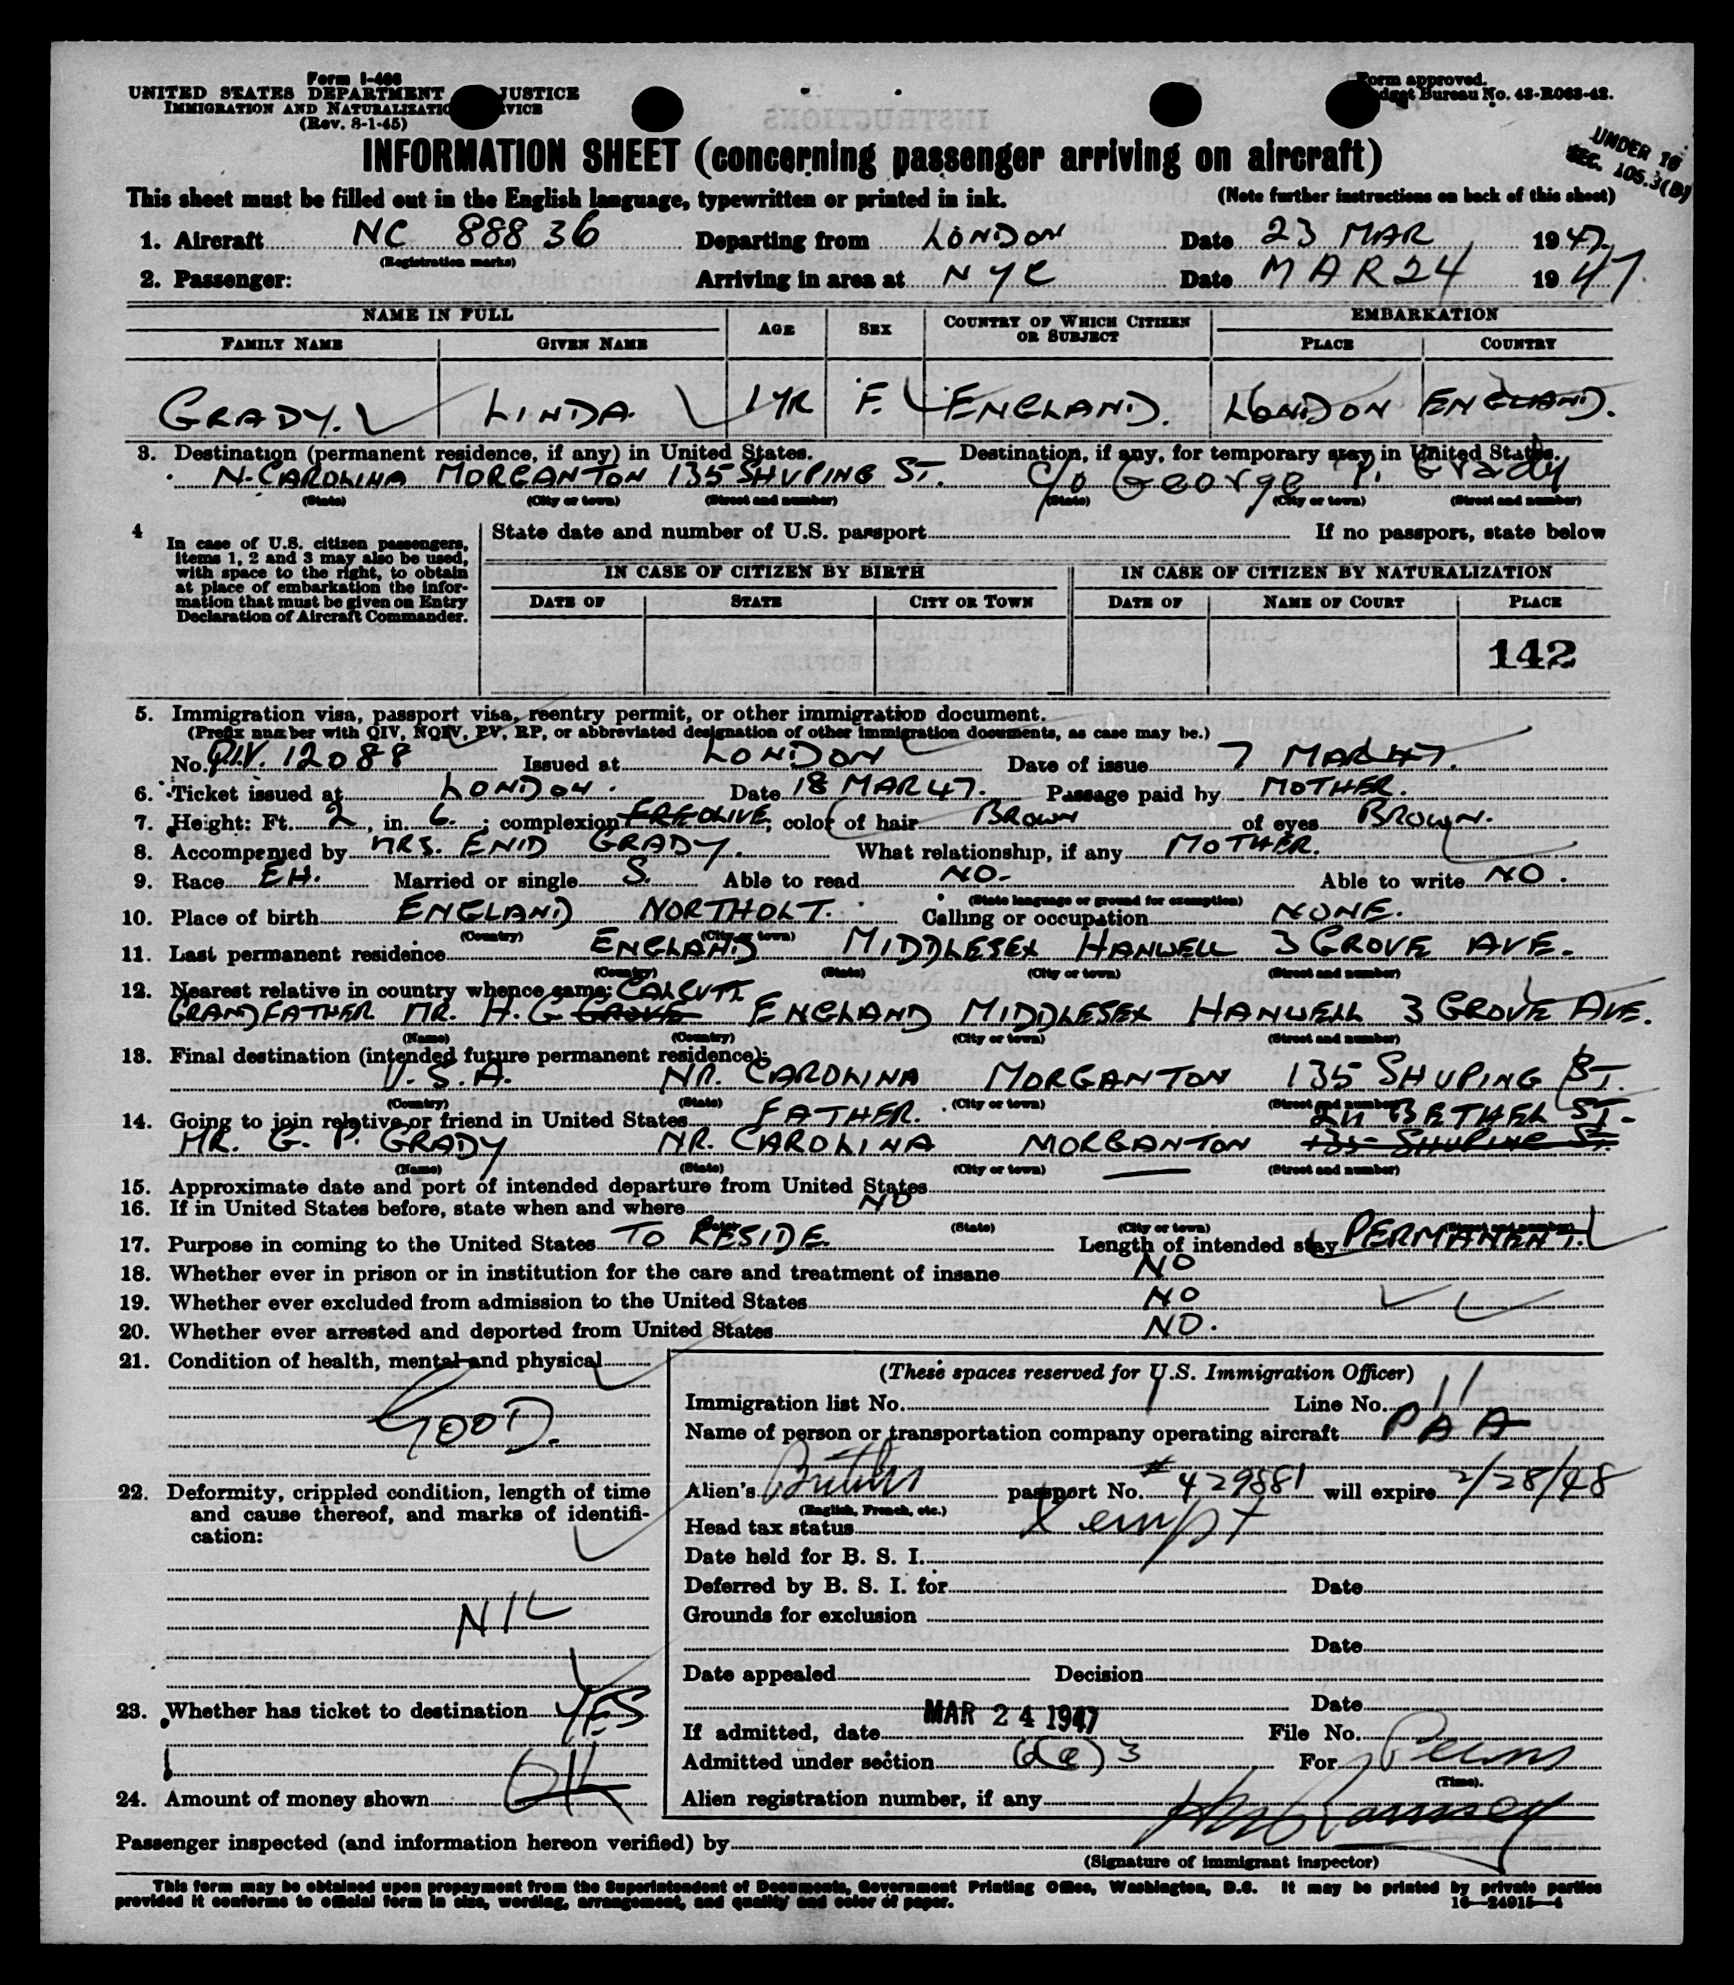 Form I-466
UNITED STATES DEPARTMENT JUSTICE
IMMIGRATION AND NATURALIZATIO VICE
(Rev. 8-1-45)
Form approved.
dget Bureau No. 43-R063-42.
UNDER 16
SEC. 105.3(B)
INFORMATION SHEET (concerning passenger arriving on aircraft)
This sheet must be filled out in the English language, typewritten or printed in ink. (Note further instructions on back of this sheet)
1. Aircraft NC 88836 Departing from LONDON Date 23 MAR 1947.
(Registration marks)
2. Passenger: Arriving in area at NYC Date MAR 24 1947
NAME IN FULL AGE SEX COUNTRY OF WHICH CITIZEN OR SUBJECT EMBARKATION
FAMILY NAME GIVEN NAME PLACE COUNTRY
GRADY. LINDA. 1 YR F. ENGLAND. LONDON ENGLAND.
3. Destination (permanent residence, if any) in United States. Destination, if any, for temporary stay in United States.
N. CAROLINA MORGANTON 135 SHUPING ST. c/o George P. Grady
(State) (City or town) (Street and number) (State) (City or town) (Street and number)
4 In case of U.S. citizen passengers, items 1, 2 and 3 may also be used, with space to the right, to obtain at place of embarkation the information that must be given on Entry Declaration of Aircraft Commander.
State date and number of U.S. passport If no passport, state below
IN CASE OF CITIZEN BY BIRTH IN CASE OF CITIZEN BY NATURALIZATION
DATE OF STATE CITY OR TOWN DATE OF NAME OF COURT PLACE
142
5. Immigration visa, passport visa, reentry permit, or other immigration document.
(Prefix number with QIV, NQIV, PV, RP, or abbreviated designation of other immigration documents, as case may be.)
No. Q.I.V. 12088 Issued at LONDON Date of issue 7 MAR 47.
6. Ticket issued at LONDON. Date 18 MAR 47. Passage paid by MOTHER.
7. Height: Ft. 2, in. 6.; complexion OLIVE; color of hair BROWN of eyes BROWN.
8. Accompanied by MRS. ENID GRADY. What relationship, if any MOTHER.
9. Race EH. Married or single S. Able to read NO- Able to write NO.
(State language or ground for exemption)
10. Place of birth ENGLAND NORTHOLT. Calling or occupation NONE.
(Country) (City or town)
11. Last permanent residence ENGLAND MIDDLESEX HANWELL 3 GROVE AVE.
(Country) (State) (City or town) (Street and number)
12. Nearest relative in country whence came: CALCUTT
GRANDFATHER MR. H. G GROVE ENGLAND MIDDLESEX HANWELL 3 GROVE AVE.
(Name) (Country) (City or town) (Street and number)
13. Final destination (intended future permanent residence):
U.S.A. NR. CAROLINA MORGANTON 135 SHUPING ST.
(Country) (State) (City or town) (Street and number)
14. Going to join relative or friend in United States FATHER. 211 BETHEL ST.
MR. G. P. GRADY NR. CAROLINA MORGANTON 135 SHUPING ST.
(Name) (State) (City or town) (Street and number)
15. Approximate date and port of intended departure from United States
16. If in United States before, state when and where NO
(Date) (State) (City or town) (Street and number)
17. Purpose in coming to the United States TO RESIDE. Length of intended stay PERMANENT.
18. Whether ever in prison or in institution for the care and treatment of insane NO
19. Whether ever excluded from admission to the United States NO
20. Whether ever arrested and deported from United States NO.
21. Condition of health, mental and physical
GOOD.
22. Deformity, crippled condition, length of time
and cause thereof, and marks of identifi-
cation:
NIL
23. Whether has ticket to destination YES
24. Amount of money shown OH
(These spaces reserved for U.S. Immigration Officer)
Immigration list No. 1 Line No. 11
Name of person or transportation company operating aircraft PAA
Alien's British passport No. #429881 will expire 2/28/48
(English, French, etc.)
Head tax status Xempt
Date held for B. S. I.
Deferred by B. S. I. for Date
Grounds for exclusion
Date
Date appealed Decision
Date
If admitted, date MAR 24 1947 File No.
Admitted under section 3 For Perm
(Time).
Alien registration number, if any
Passenger inspected (and information hereon verified) by
(Signature of immigrant inspector)
This form may be obtained upon prepayment from the Superintendent of Documents, Government Printing Office, Washington, D.C. It may be printed by private parties
provided it conforms to official form in size, wording, arrangement, and quality and color of paper. 16—24915-4